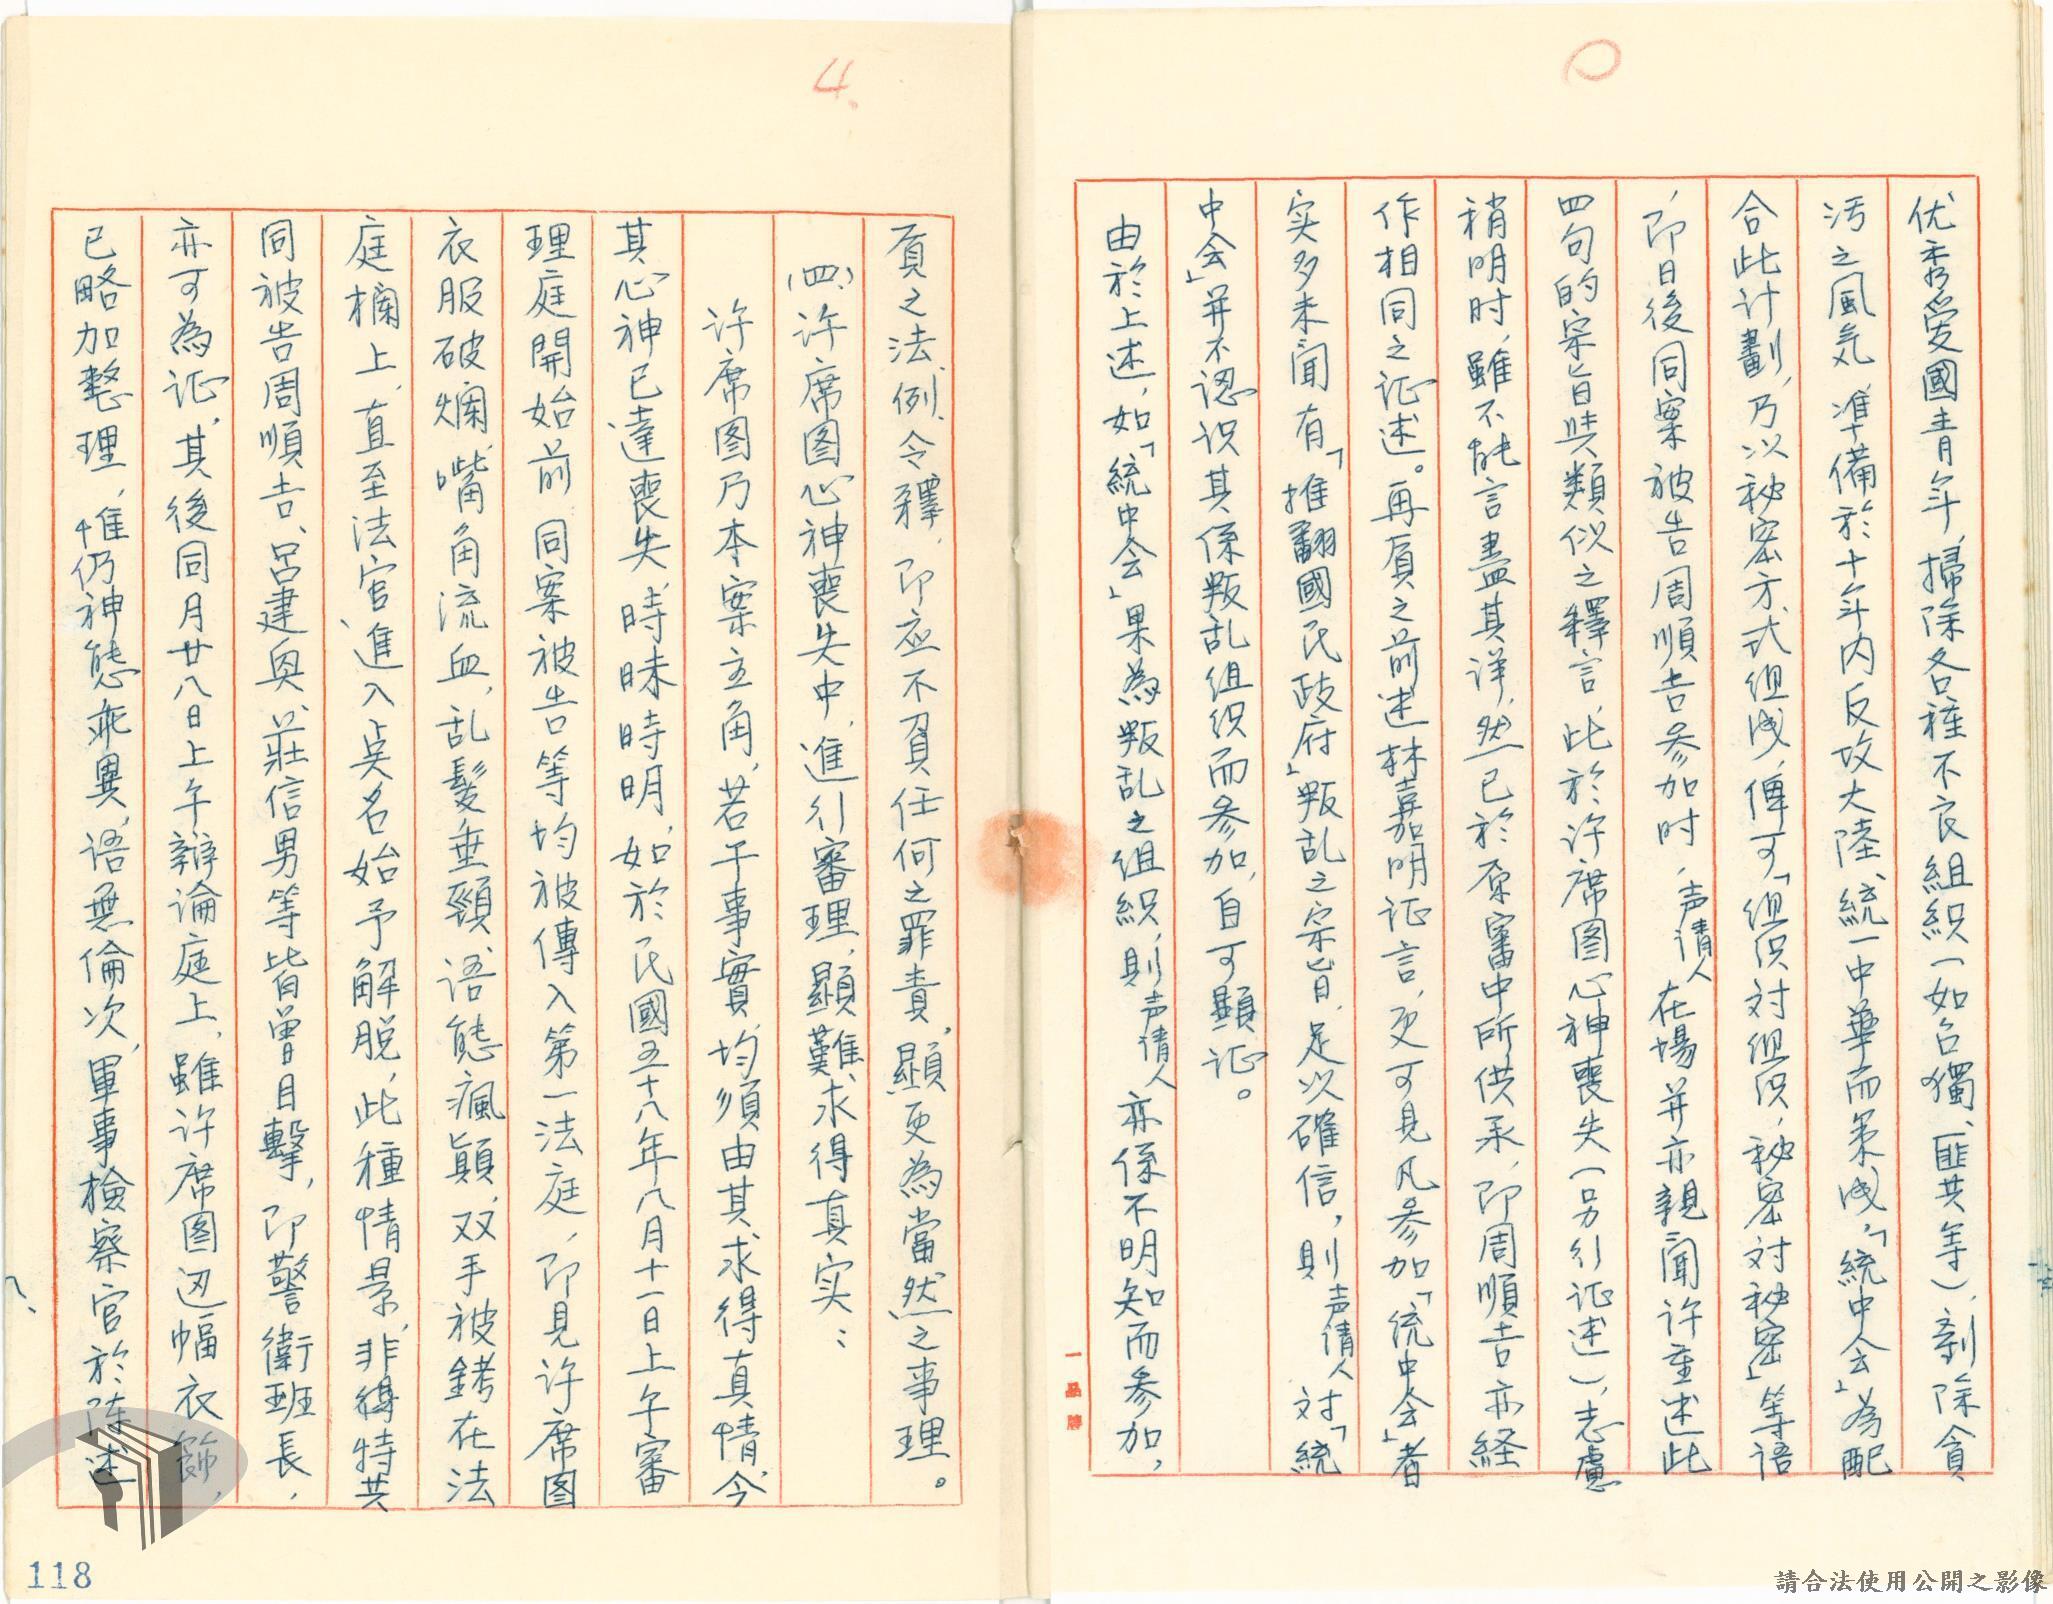 优秀愛國青年，掃除各種不良組織（如台獨、匪共等），剷除貪
污之風気，準備於十年内反攻大陸、統一中華而策成，「統中会」為配
合此计劃，乃以秘密方式组成，俾可「组织对组织，秘密对秘密」等语
，即日後同案被告周順吉参加时，声请人在場并亦親聞许重述此
四句的宗旨與類似之釋言，此於许席图心神喪失（另引证述），志慮
稍明时，雖不能言盡其详，然已於原審中所供承，即周順吉亦経
作相同之证述。再質之前述林嘉明证言，更可見凡参加「统中会」者
实多未聞有「推翻國民政府」叛乱之宗旨，足以確信，則声请人对「統
中会」并不認识其係叛乱组织而参加，自可顯证。
由於上述，如「統中会」果為叛乱之组織，則声请人亦係不明知而参加，
質之法、例、令釋，即应不負任何之罪責，顯更為當然之事理。
（四）许席图心神喪失中，進行審理，顯難求得真实：
许席图乃本案主角，若干事實，均須由其求得真情，今
其心神已達喪失，時昧時明，如於民國五十八年八月十一日上午審
理庭開始前，同案被告等均被傳入第一法庭，即見许席图
衣服破爛，嘴角流血，乱髮垂頸，语態瘋顛，双手被銬在法
庭欄上，直至法官進入点名始予解脱，此種情景，非得特共
同被告周順吉、吕建興、莊信男等皆曾目擊，即警衛班長，
亦可為证，其後同月廿八日上午辯論庭上，雖许席图边幅衣飾，
已略加整理，惟仍神態乖異，语無倫次，軍事檢察官於陳述
4.
一品牌
118
請合法使用公開之影像